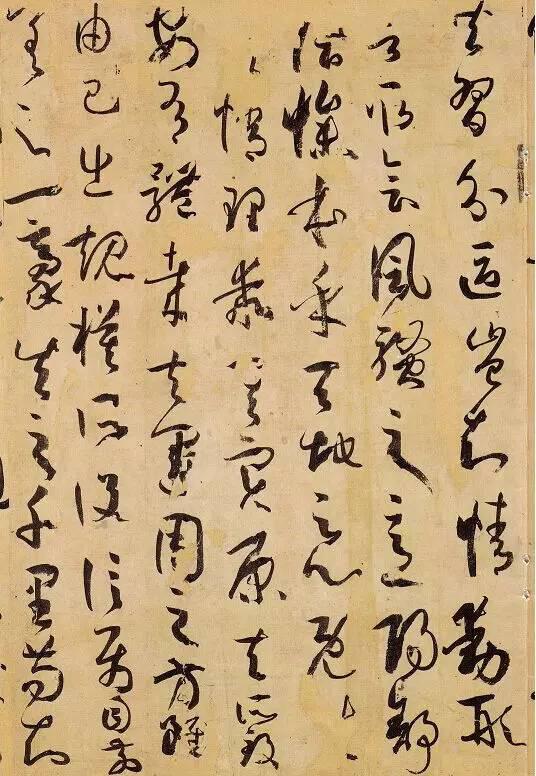 共習分區豈知情動形
言取會風騷之意陽舒
陰慘本乎天地之心既失
其情理乖其實原夫所致
安有體哉夫運用之方雖
由己出規模所設信屬目前
差之一豪失之千里苟知